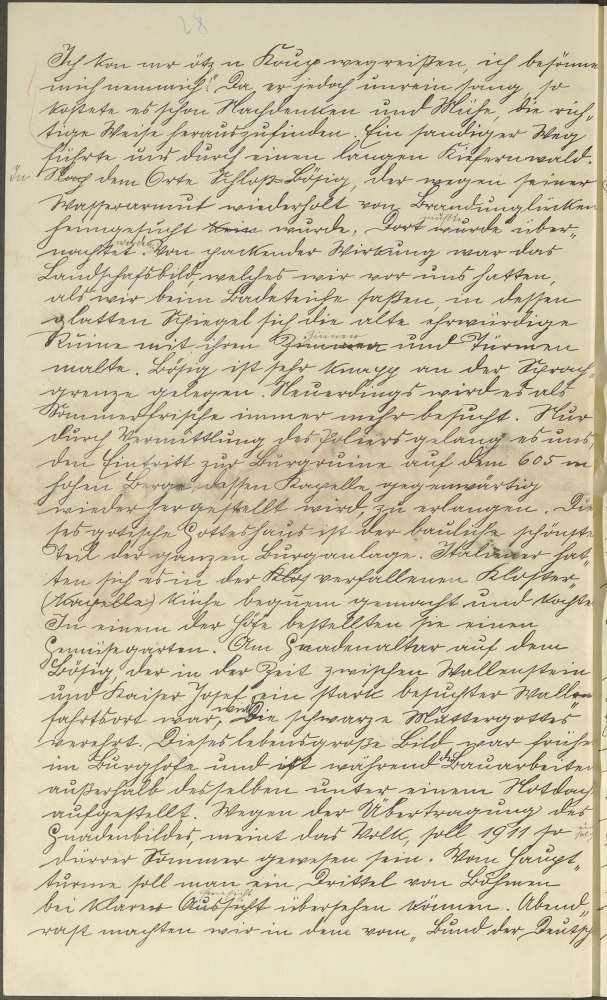 28
Ich kon nur ötz n Koup wegreißen, ich besönne
mich nemmich". Da er jedoch unrein sang, so
kostete es schon Nachdenken und Mühe, die rich„
tige Weise herauszufinden. Ein sandiger Weg
führte uns durch einen langen Kiefernwald.
In Nach dem Orte Schloß-Bösig, der wegen seiner
Wasserarmut wiederholt von Brandunglücken
heimgesucht wurde, Dort mußte wurde über„
nachtet werden. Von packender Wirkung war das
Landschafsbild, welches wir vor uns hatten,
als wir beim Badeteiche saßen, in dessen
glatten Spiegel sich die alte ehrwürdige
Ruine mit ihren Zinnen und Türmen
malte. Bösig ist sehr knapp an der Sprach„
grenze gelegen. Neuerdings wird es als
Sommerfrische immer mehr besucht. Nur
durch Vermittlung des Poliers gelang es uns,
den Eintritt zur Burgruine auf dem 605 m
hohen Berge, dessen Kapelle gegenwärtig
wiederhergestellt wird, zu erlangen. Die
ses gotische Gotteshaus ist der bauliche schönste
Teil der ganzen Burganlage. Italiener hat„
ten sich es in der verfallenen Kloster
(Kapelle) küche bequem gemacht und kochte
In einem der Höfe bestellten sie einen
Gemüsegarten. Am Gnadenaltar auf dem
Bösig, der in der Zeit zwischen Wallenstein
und Kaiser Josef ein stark besuchter Wall„
fahrtsort war, wird die schwarze Muttergottes
verehrt. Dieses lebensgroße Bild war früher
im Burghofe und ist während der Bauarbeiten
außerhalb desselben unter einem Notdach
aufgestellt. Wegen der Übertragung des
Gnadenbildes, meint das Volk, soll 1911 so
dürrer Sommer gewesen sein. Vom Haupt„
turme soll man ein Drittel von Böhmen
bei klarer Aussicht übersehen können. Abend„
rast machten wir in dem vom „Bund der Deutsch